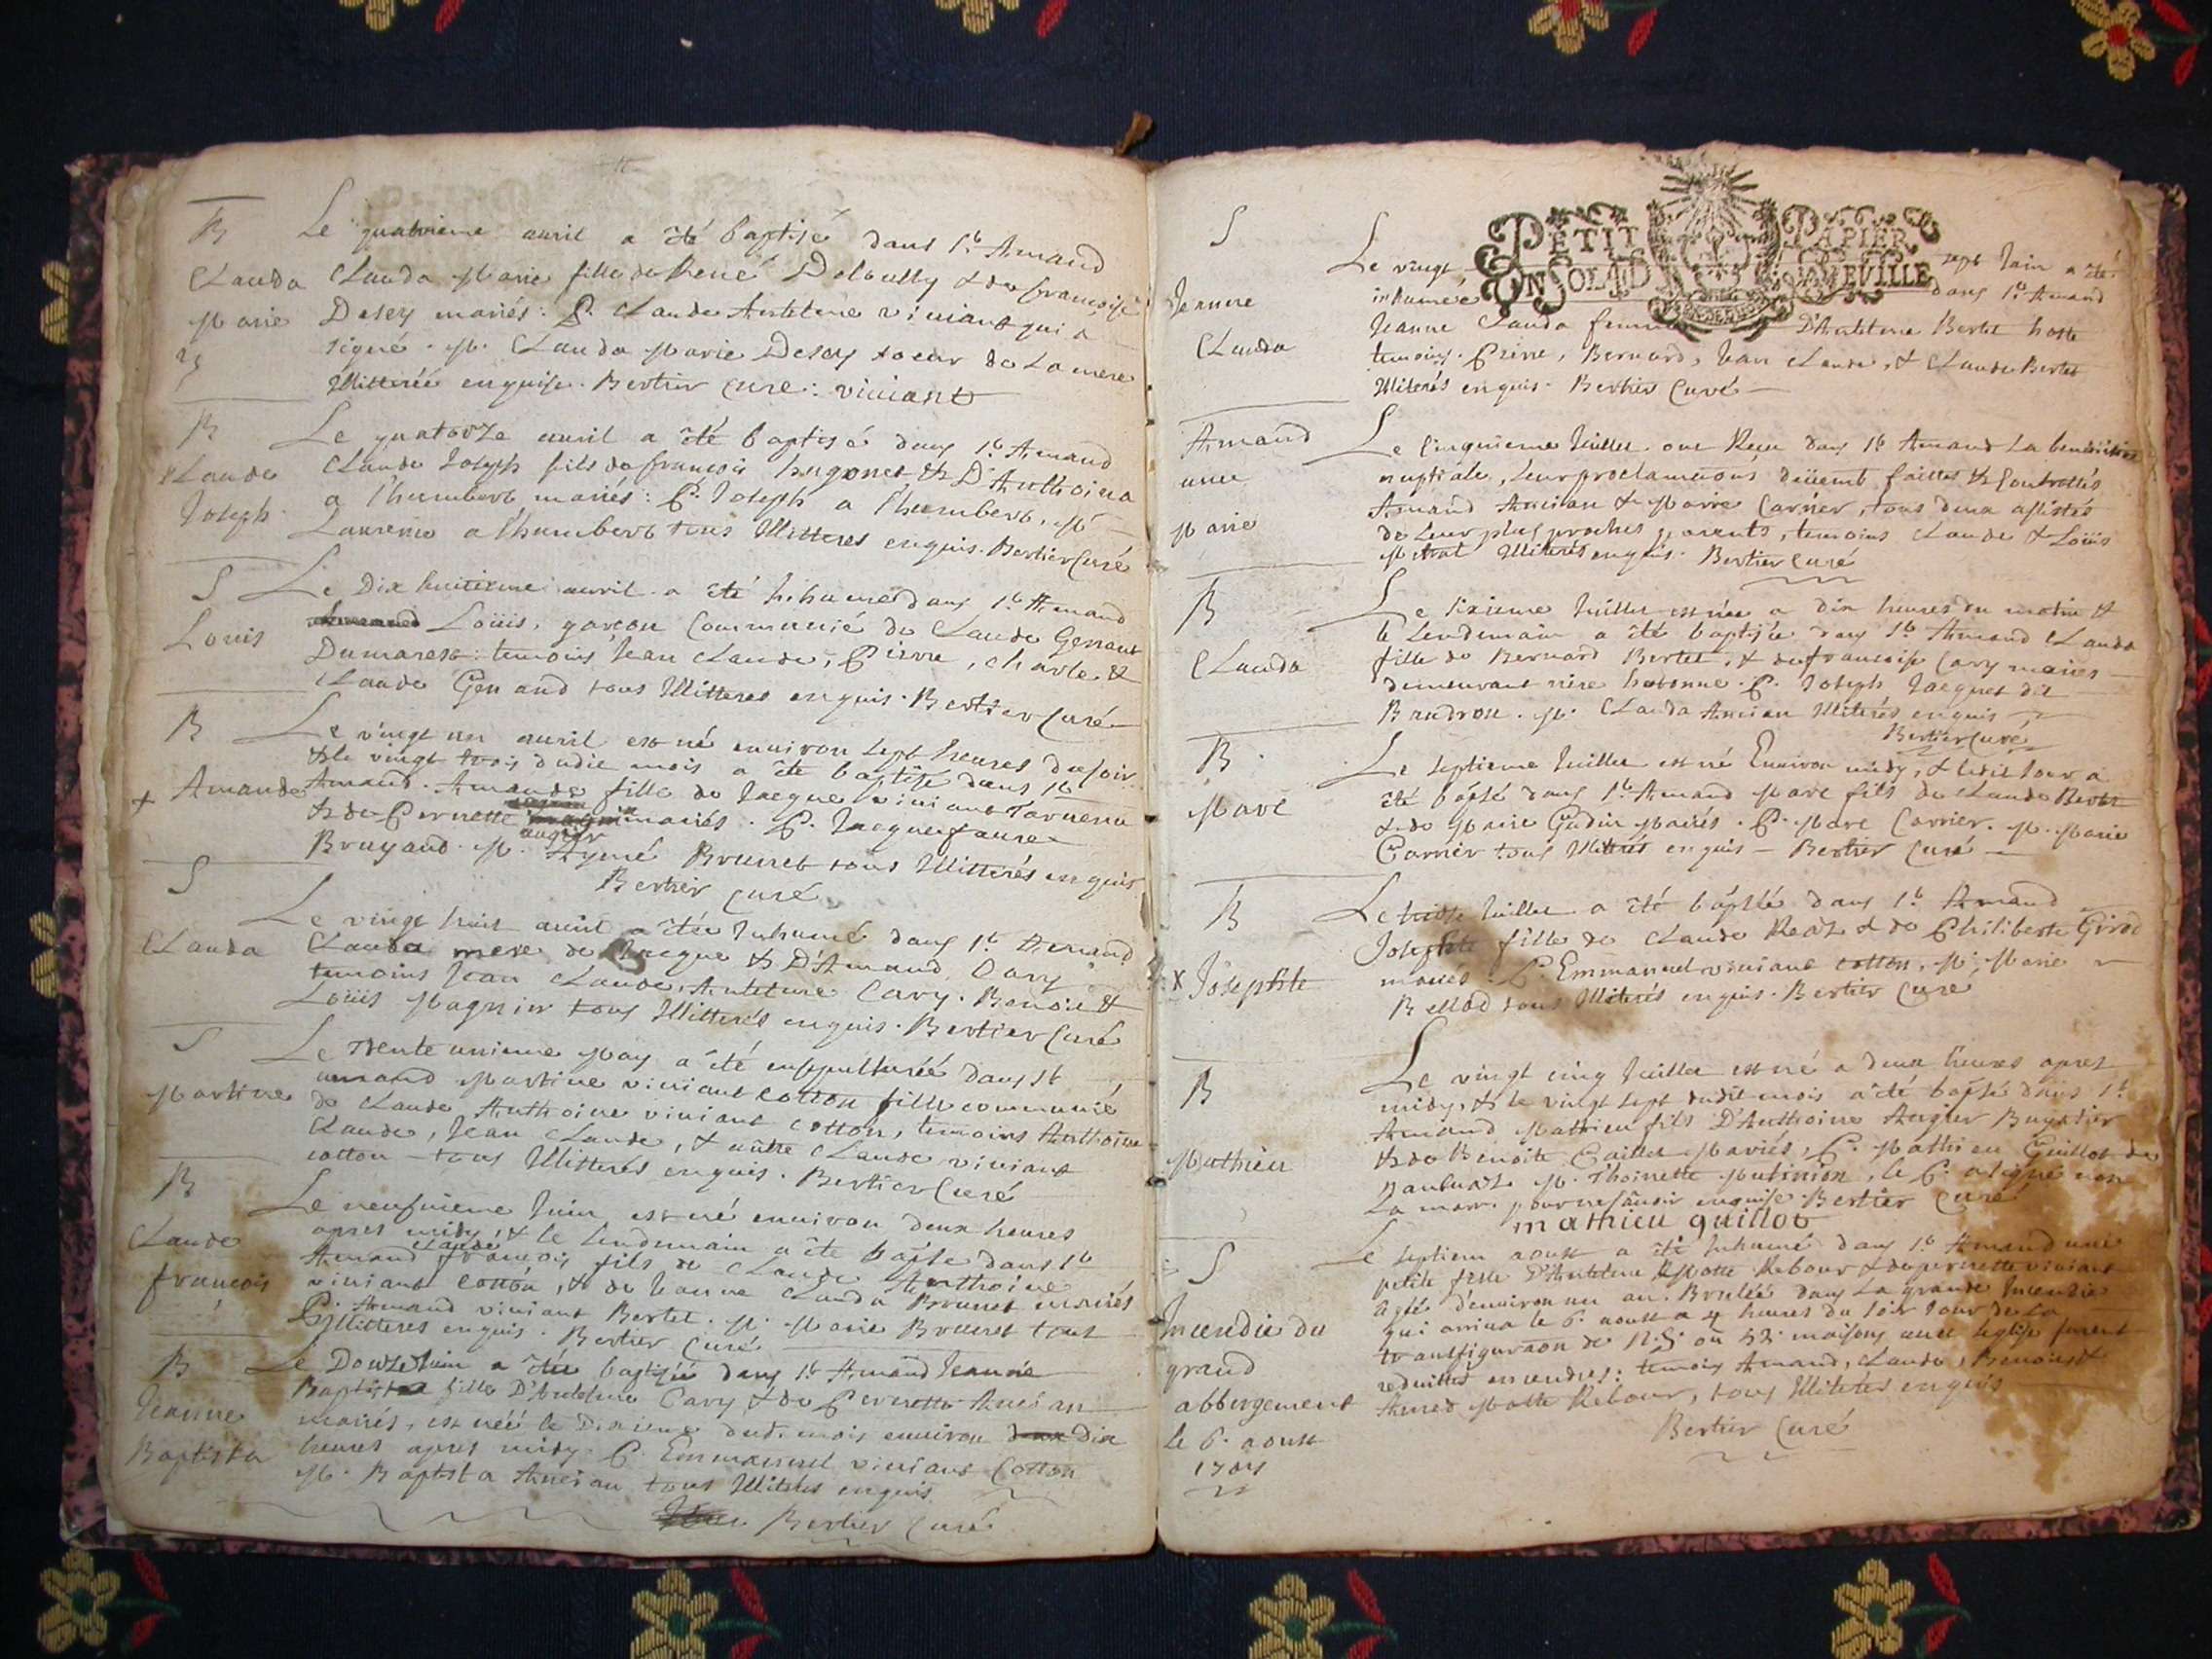 B
Claude
Marie
Le quatrieme auril a été baptisé dans St. Amand
Claude Marie fille de René & de francoise
Desey mariés: P. Claude Anthelme viuiant qui a
signé. M. Claude Marie Desey soeur de la mere
illitterée enquise. Bertier Curé: viuiant
B
Claude
Joseph
Le quatorze auril a été baptisé dans St. Amand
Claude Joseph fils de francois hugonet & D'Anthoina
a l'humbert mariés: P. Joseph a l'humbert, M.
Laurence a l'humbert tous illitteres enquis. Bertier Curé
S
Louis
Le Dix huitieme auril a été inhumé dans St. Amand
Loüis, garcon communié de Claude Genant
Dumarest: temoins Jean Claude, Pierre, charle &
Claude Genand tous illitteres enquis. Bertier Curé
B
+ Amande
Le vingt un auril est né enuiron sept heures du soir
& le vingt trois dudit mois a été baptisé dans St.
Amand. Amande fille de Jacque viuiant Tauenu
& de Pernette augier mariés. P. Jacque faure
Bruyand. M. Aymé Brunet tous illitterés enquis
Bertier Curé
S
Clauda
Le vingt huit auril a été Inhumé dans St. Amand
Clauda mere de Jacque & D'Amand Cary
temoins Jean Claude, Anteleme Cary. Benoit &
Loüis Magnin tous illitterés enquis. Bertier Curé
S
Martine
Le Trente unieme May a été ensepulturée dans St
amand Martine viuiant cotton fille communié
de Claude Anthoine viuiant cotton, temoins Anthoine
Claude, Jean Claude, & autre Claude viuiant
cotton tous illitterés enquis. Bertier Curé
B
Claude
francois
Le neufuieme Juin est né enuiron deux heures
apres midy, & le lendemain a été baptsé dans St
Claude
Amand francois fils de Claude Anthoine
viuiant cotton, & de Jeanne Clauda Brunet mariés
P. Armand viuiant Bertet. M. Marie Brunet tous
illitteres enquis. Bertier Curé
B
Jeanne
Baptista
Le Douze Juin a été baptisée dans St. Amand Jeanne
Baptista fille D'Antelme Cary & de Pernette Ancian
mariés, est née le Dixieme dud. mois enuiron dix
heures apres midy. P. Emmanuel viuiant Cotton
M. Baptista Ancian tous illiteres enquis
Bertier Curé
PETIT PAPIER
UN SOL LA D
GENERALITE
S
Jeanne
Clauda
Le vingt sept Juin a été
inhumée dans St. Amand
Jeanne Clauda femme D'Antelme Bertet hoste
temoins. Pierre, Bernard, Jean Claude, & Claude Bertet
illiterés enquis. Bertier Curé
Armand
auec
Marie
Le Cinquieme Juillet ont Receu dans St. Amand La benediction
nuptiale, leur proclamations düement faittes & Controllés
Armand Ancian & Marie Carrier, tous deux assistés
de leur plus proches parents, temoins Claude & Loüis
Mitral illiterés enquis. Bertier Curé
B
Clauda
Le sixieme Juillet est née a dix heures du matin &
le Lendemain a été baptisée dans St. Amand Clauda
fille de Bernard Bertet, & de francoise Cary mariés
demeurant. P. Joseph Jacquet dit
Baudron. M. Clauda Ancian illiterés enquis
Bertier Curé
B
Marc
Le septieme Juillet est né Enuiron midy, & ledit Jour a
été baptsé dans St. Amand Marc fils de Claude Bertet
& de Marie Gudin Mariés. P. Marc Carrier. M. Marie
Carrier tous illiterés enquis Bertier Curé
B
x Josephte
Le treize Juillet a été baptsée dans St. Amand
Josephte fille de Claude Reaz & de Philiberte Girod
mariés. P. Emmanuel viuiant cotton, M. Marie
Bellod tous illiterés enquis. Bertier Curé
B
Mathieu
Le vingt cinq Juillet est né a deux heures apres
midy, & le vingt sept dudit mois a été baptsé dans St.
Amand Mathieu fils D'Anthoine Augier Buyatier
& de Benoite Caillet Mariés, P. Mathieu Guillot de
M. Thoinette Mutinion, le P. a signé non
La marr. pour ne sauoir enquise. Bertier Curé
mathieu guillot
S
Incendie du
grand
abbergement
le 6. aoust
1704
Le septiem aoust a été Inhumé dans St. Amand une
petite fille D'Antelme Motte Rebour & de pernette viuiant
agée d'enuiron un an. Brulée dans La grande Incendie
qui arriua le 6. aoust a 4 heures du soir Jour de La
transfiguraon de N. S. où 52. maisons auec leglise furent
reduittes en cendres: temoins Amand, Claude, Benoist &
Aimed Motte Rebour, tous illiterés enquis
Bertier Curé